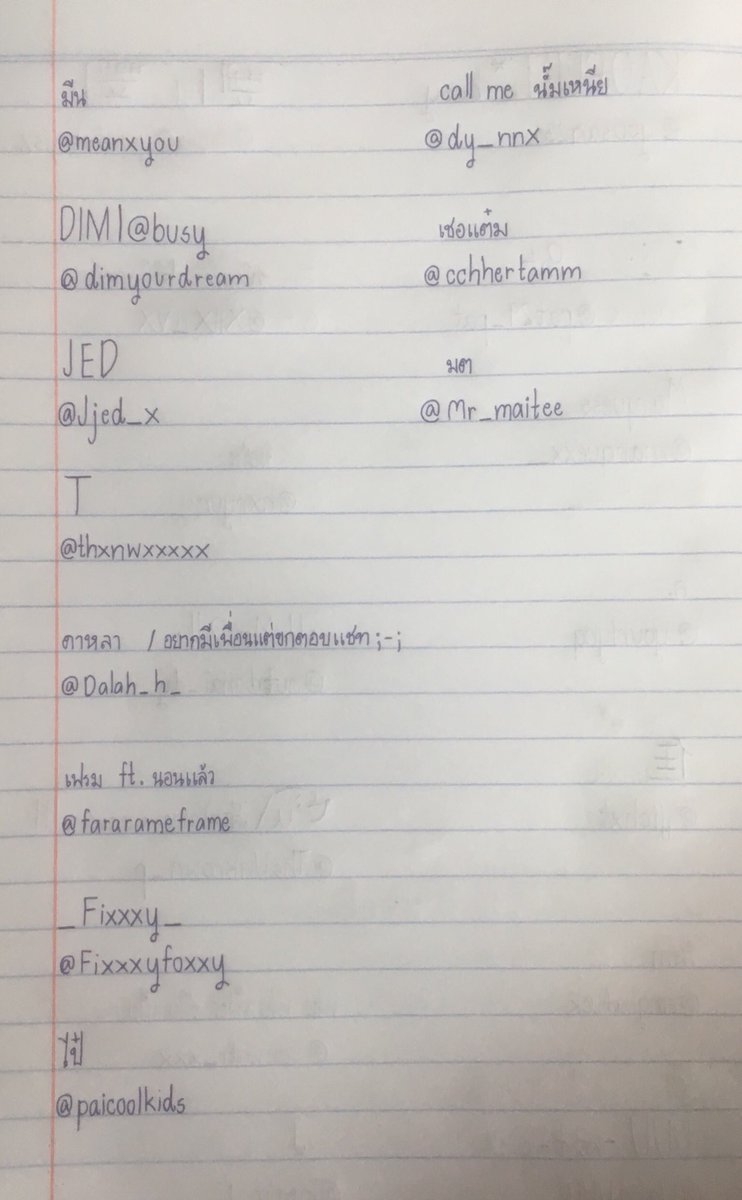 มีน
@meanxyou
DIMI@busy
@dimyourdream
JED
@Jjed_x
T
@thxnwxxxxx
ดาหลา / อยากมีเพื่อนแต่ขกตอบแชท ;-;
@Dalah_h_
เฟรม ft. นอนแล้ว
@fararameframe
_Fixxxy_
@Fixxxyfoxxy
ไป๋
@paicoolkids
call me นั๊มเหนีย
@dy_nnx
เชอแต๋ม
@cchhertamm
มต
@Mr_maitee